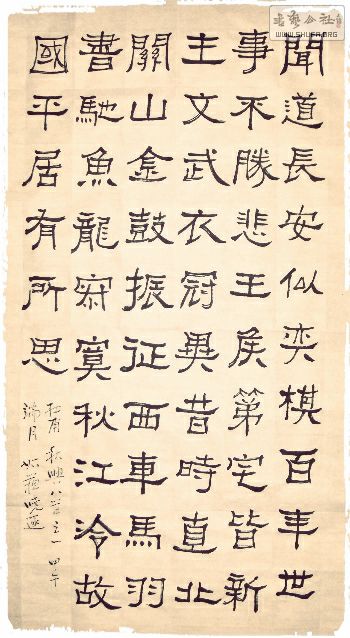 聞道長安似奕棋百年世
事不勝悲王侯第宅皆新
主文武衣冠異昔時直北
關山金鼓振征西車馬羽
書馳魚龍寂寞秋江冷故
國平居有所思
杜甫秋興八首之一甲午
端月
书艺公社
WWW.SHUFA.ORG